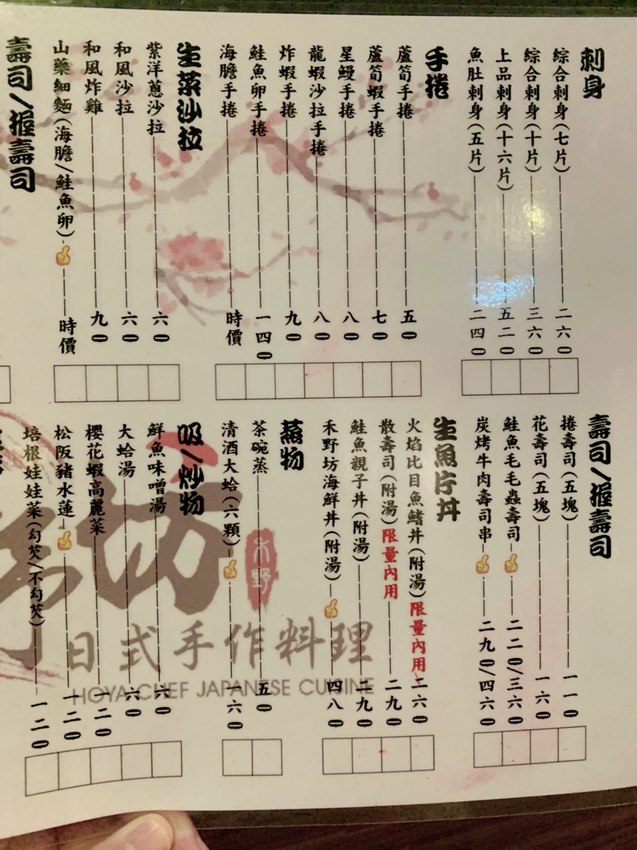 刺身
綜合刺身(七片) 二六0
綜合刺身(十片) 三六0
上品刺身(十六片) 五二0
魚肚刺身(五片) 二四0
手捲
蘆筍手捲 五0
蘆筍蝦手捲 七0
星鰻手捲 八0
龍蝦沙拉手捲 八0
炸蝦手捲 九0
鮭魚卵手捲 一四0
海膽手捲 時價
生菜沙拉
紫洋蔥沙拉 六0
和風沙拉 六0
和風炸雞 九0
山藥細麵(海膽/鮭魚卵) 時價
壽司/握壽司
壽司/握壽司
捲壽司(五塊) 一一0
花壽司(五塊) 一六0
鮭魚毛毛蟲壽司 二二0/三六0
炭烤牛肉壽司串 二九0/四六0
生魚片丼
火焰比目魚鰭丼(附湯)限量內用 二六0
散壽司(附湯)限量內用 二九0
鮭魚親子丼(附湯) 二九0
禾野坊海鮮丼(附湯) 四八0
蒸物
茶碗蒸 五0
清酒大蛤(六顆) 一六0
吸/炒物
鮮魚味噌湯 六0
大蛤湯 六0
櫻花蝦高麗菜 一二0
松阪豬水蓮 一二0
培根娃娃菜(勾芡/不勾芡) 一二0
坊
禾野
日式手作料理
HOYA CHEF JAPANESE CUISINE